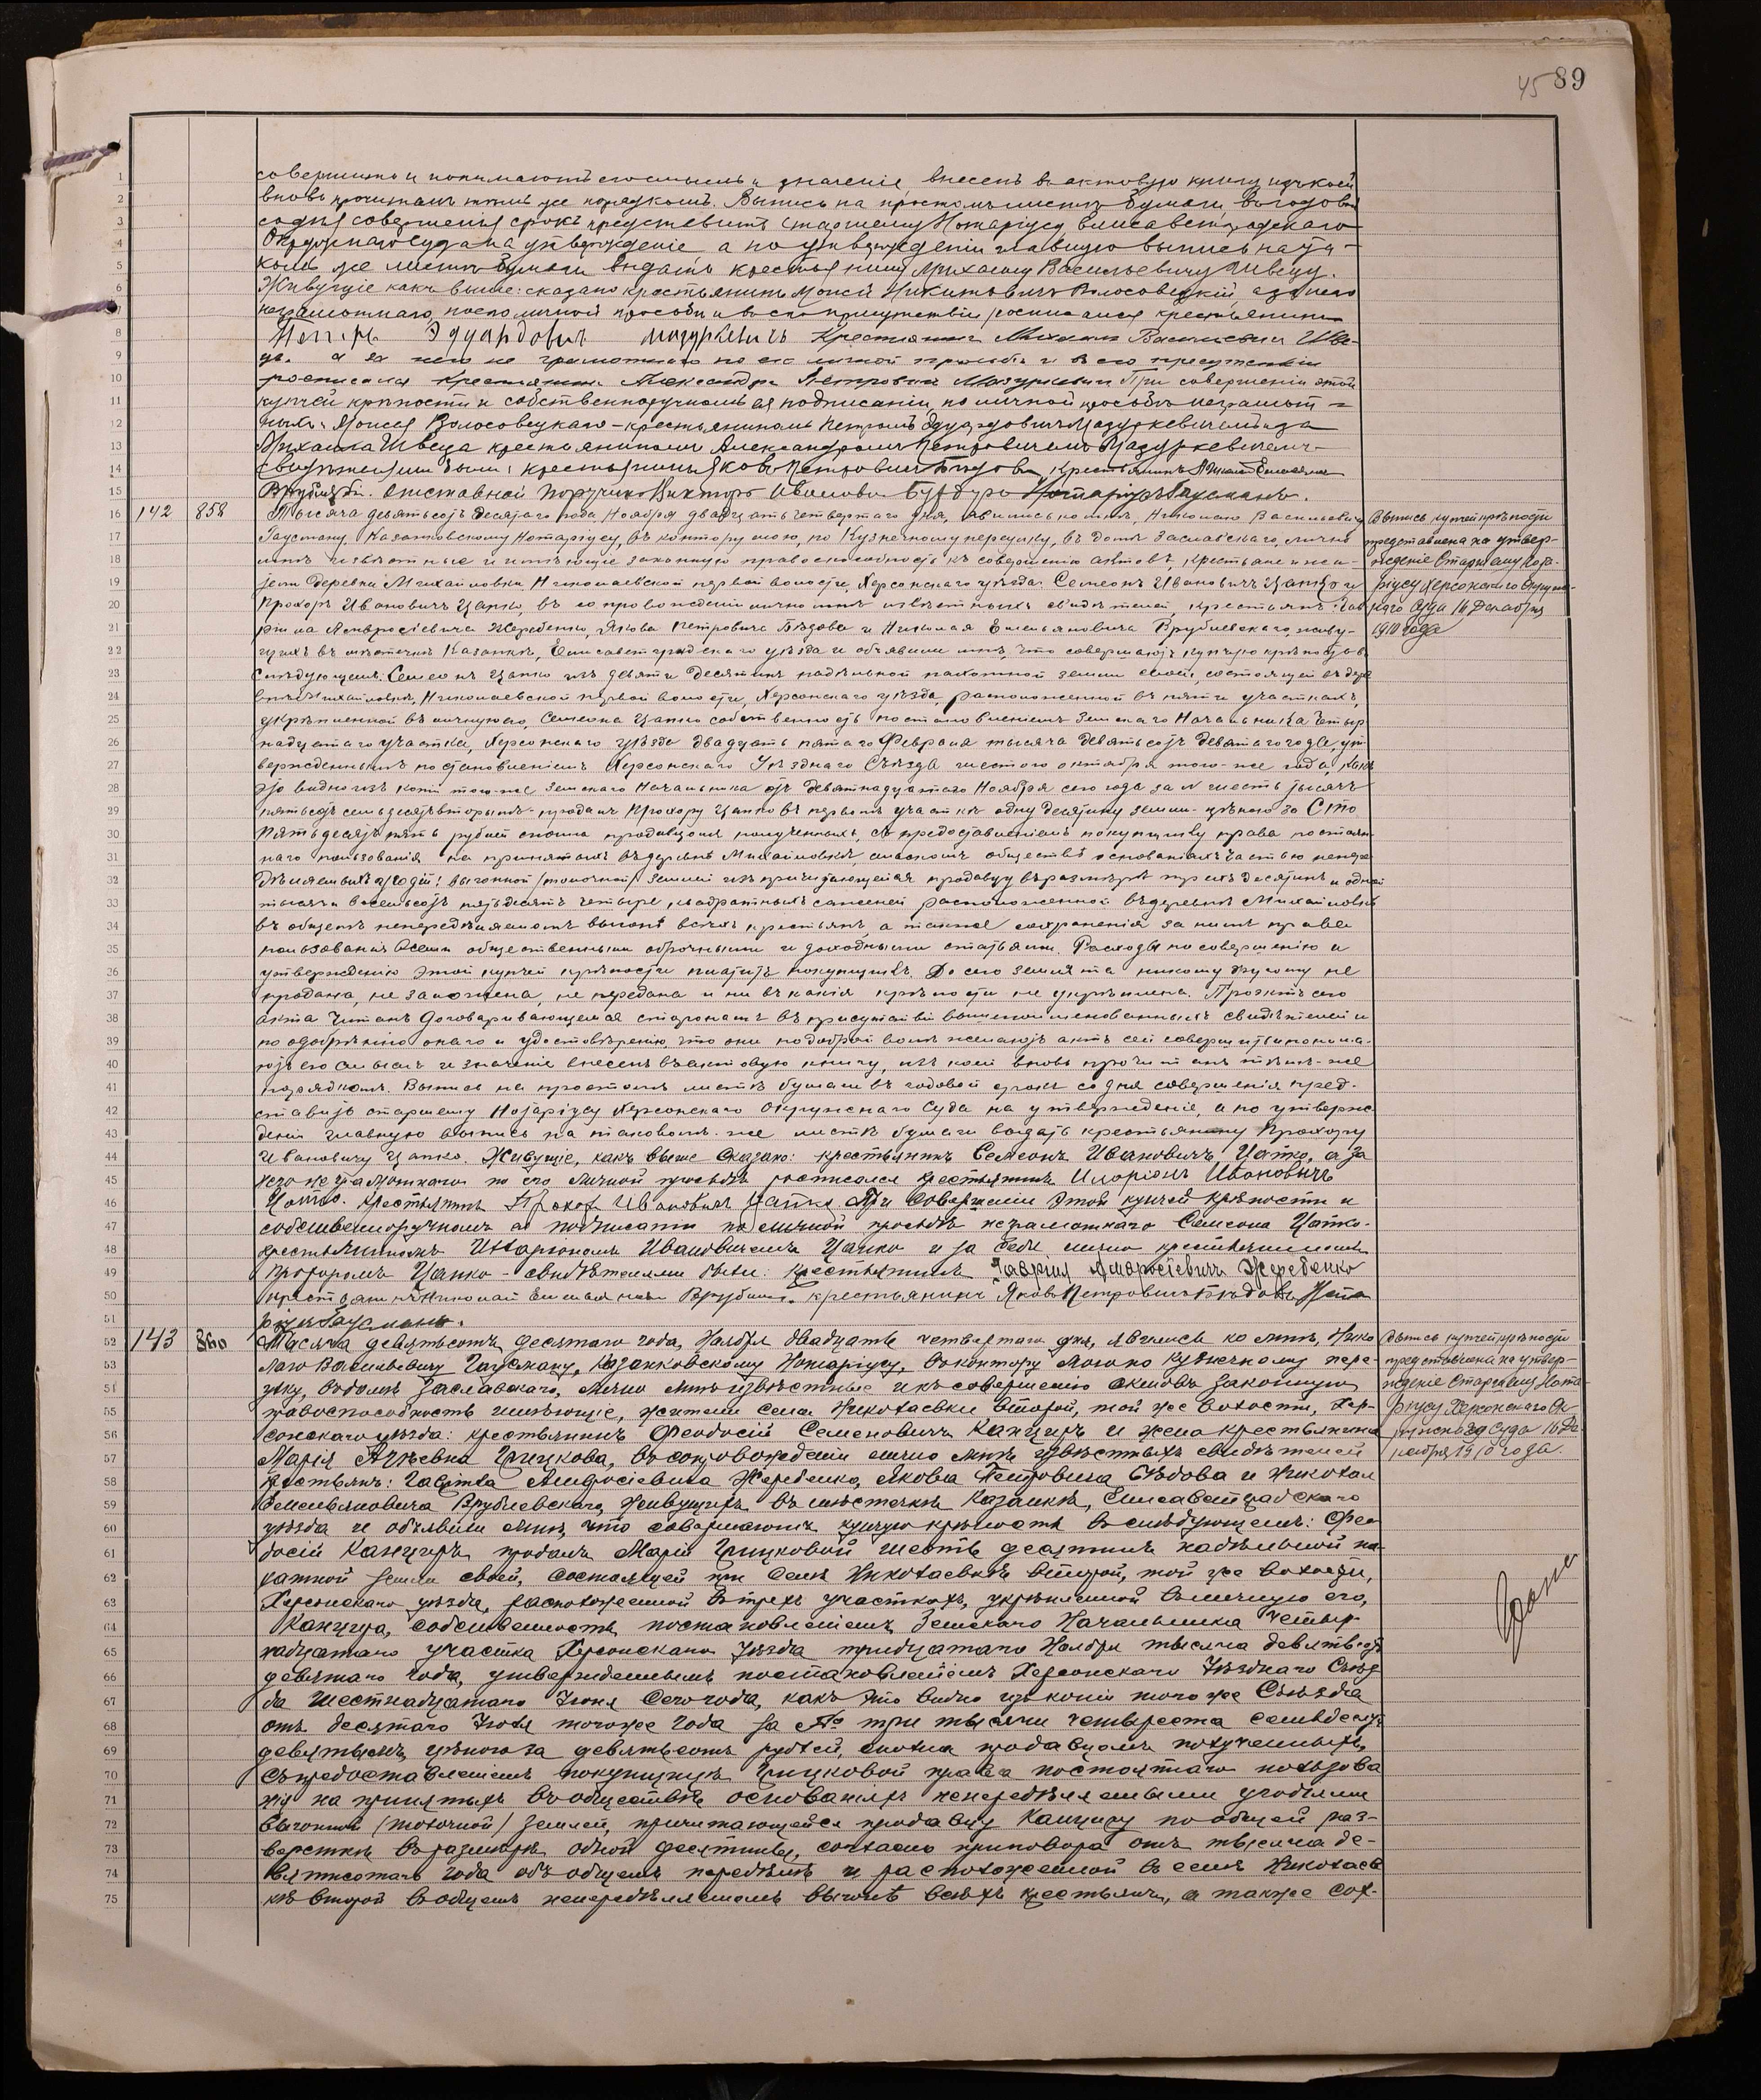 45 89
совершить и понимаютъ его смыслъ и значеніе, внесенъ въ актовую книгу, изъ коей
вновь прочитанъ тѣмъ же порядкомъ. Выпись на простомъ листѣ бумаги, въ годовой
со дня совершенія срокъ представить Старшему Нотаріусу Елисаветградскаго
Окружнаго Суда на утвержденіе а по утвержденіи главную выпись на та-
комъ же листѣ бумаги выдать крестьянину Михаилу Васильевичу Швецу.
Живущіе какъ выше сказано: крестьянинъ Моисей Никитовичъ Волосовецкій, а за него
неграмотнаго, по его личной просьбѣ и въ его присутствіи росписался крестьянинъ
Петръ Эдуардовичъ Мазуркевичъ Крестьянинъ Михаилъ Васильевич Шве-
цъ. а за него не грамотнаго по его личной просьбѣ и въ его присутствіи
росписался крестьянинъ Александръ Петровичъ Мазуркевич При совершеніи этой
купчей крѣпости и собственноручномъ ея подписаніи, по личной просьбѣ неграмот-
ныхъ: Моисея Волосовецкаго - крестьяниномъ Петромъ Эдуардовичемъ Мазуркевичемъ и за
Михаила Швеца крестьяниномъ Александромъ Петровичемъ Мазуркевичемъ -
свидѣтелями были: крестьянинъ Яковъ Петровичъ Бѣдовъ, крестьянинъ Николай Емельянов
Врублевскій. отставной Поручикъ Викторъ Ивановъ Нотаріусъ Гаусманъ.
142 858 Тысяча девятьсотъ десятаго года, Ноября двадцать четвертаго дня, явились ко мнѣ, Николаю Васильевичу
Гаусману, Казанковскому Нотаріусу, въ контору мою, по Кузнечному переулку, въ домѣ Заславскаго, лично
мнѣ извѣстные и имѣющіе законную правоспособность къ совершенію актовъ, крестьяне и жи-
тели деревни Михайловки, Николаевской первой волости, Херсонскаго уѣзда: Семенъ Ивановичъ Цапко и
Прохоръ Ивановичъ Цапко, въ сопровожденіи лично мнѣ извѣстныхъ свидѣтелей, крестьянъ: Гав-
ріила Амвросіевича Жеребенко, Якова Петровича Бѣдова и Николая Емельяновича Врублевскаго, живу-
щихъ въ мѣстечкѣ Казанкѣ, Елисаветградскаго уѣзда и объявили мнѣ, что совершаютъ купчую крѣпость въ
слѣдующемъ: Семенъ Цапко изъ девяти десятинъ надѣльной пахотной земли своей, состоящей въ дере-
внѣ Михайловкѣ, Николаевской первой волости, Херсонскаго уѣзда, расположенной въ пяти участкахъ,
укрѣпленной въ личную его, Семена Цапко собственность постановленіемъ Земскаго Начальника Четыр-
надцатаго участка, Херсонскаго уѣзда двадцать пятаго Февраля тысяча девятьсотъ девятаго года, ут-
вержденнымъ постановленіемъ Херсонскаго Уѣзднаго Съѣзда шестого октября того-же года, какъ
это видно изъ копіи того-же Земскаго Начальника отъ девятнадцатаго Ноября сего года за № шесть тысячъ
пятьсотъ семьдесятъ вторымъ - продалъ Прохору Цапко въ первомъ участкѣ одну десятину земли - цѣною за Сто
Пятьдесятъ пять рублей сполна продавцомъ полученныхъ, съ предоставленіемъ покупщику права постоян-
наго пользованія на принятыхъ въ деревнѣ Михайловкѣ, сельскомъ обществѣ основаніяхъ частью непере-
дѣляемыхъ угодій: выгонной (толочной) землей изъ причитающейся продавцу въ размѣрѣ трехъ десятинъ и одной
тысячи восемьсотъ пятьдесятъ четыре квадратныхъ саженей расположенной въ деревнѣ Михайловкѣ
въ общемъ непередѣляемомъ выгонѣ всѣхъ крестьянъ, а также сохраненія за нимъ права
пользованія всеми общественными оброчными и доходными статьями. Расходы по совершенію и
утвержденію этой купчей крѣпости платитъ покупщикъ. До сего земля та никому другому не
продана, не заложена, не передана и ни въ какія крѣпости не укрѣплена. Проэктъ сего
акта читанъ договаривающимся сторонамъ въ присутствіи вышепоименованныхъ свидѣтелей и
по одобренію онаго и удостовѣренію, что они по доброй волѣ желаютъ актъ сей совершить и понима-
ютъ его смыслъ и значеніе внесенъ въ актовую книгу, изъ коей вновь прочитанъ тѣмъ-же
порядкомъ. Выпись на простомъ листѣ бумаги въ годовой срокъ со дня совершенія пред-
ставить старшему Нотаріусу Херсонскаго Окружнаго Суда на утвержденіе, а по утверж-
деніи главную выпись на таковомъ-же листѣ бумаги выдать крестьянину Прохору
Ивановичу Цапко. Живущіе, какъ выше сказано: крестьянинъ Семенъ Ивановичъ Цапко, а за
него неграмотнаго по его личной просьбѣ росписался крестьянинъ Иларіонъ Ивановичъ
Цапко. Крестьянинъ Прохор Ивановичъ Цапко При совершеніи этой купчей крѣпости и
собственноручномъ ея подписаніи по личной просьбѣ неграмотнаго Семена Цапко-
крестьяниномъ Иларіономъ Ивановичемъ Цапко и за себя лично крестьяниномъ
Прохоромъ Цапко - свидѣтелями были: Крестьянинъ Гавріил Амвросіевичъ Жеребенко
крестьянинъ Николай Емельянов Врублев. крестьянинъ Яковъ Петровичъ Бѣдовъ Нота-
ріусъ Гаусманъ.
Выпись купчей крѣпости
представлена на утвер-
жденіе Старшему Нота-
ріусу Херсонскаго Окруж-
наго Суда 16 Декабря
1910 года
143 860 Тысяча девятьсотъ десятаго года, Ноября двадцать четвертаго дня, явились ко мнѣ, Нико-
лаю Васильевичу Гаусману, Казанковскому Нотаріусу, въ контору мою по Кузнечному пере-
улку, въ домѣ Заславскаго, лично мнѣ извѣстные и къ совершенію актовъ законную
правоспособность имѣющіе, жители села Николаевки Второй, той же волости, Хер-
сонскаго уѣзда: крестьянинъ Феодосій Семеновичъ Канцыръ и жена крестьянина
Марія Грицкова, въ сопровожденіи лично мнѣ извѣстныхъ свидѣтелей
крестьянъ: Гавріила Амвросіевича Жеребенко, Якова Петровича Бѣдова и Николая
Емельяновича Врублевскаго, живущихъ въ мѣстечкѣ Казанкѣ, Елисаветградскаго
уѣзда и объявили мнѣ, что совершаютъ купчую крѣпость въ слѣдующемъ: Фео-
досій Канцыръ продалъ Маріи Грицковой шесть десятинъ надѣльной па-
хатной земли своей, состоящей при селѣ Николаевкѣ второй, той же волости,
Херсонскаго уѣзда, расположенной въ трехъ участкахъ, укрѣпленной въ личную его,
Канцыра, собственность постановленіемъ Земскаго Начальника Четыр-
надцатаго участка Херсонскаго Уѣзда тридцатаго Ноября тысяча девятьсотъ
девятаго года, утвержденнымъ постановленіемъ Херсонскаго Уѣзднаго Съѣз-
да шестнадцатаго Іюня сего года, какъ это видно изъ копіи того же Съѣзда
отъ десятаго Іюля того же года за № три тысячи четыреста семьдесятъ
девятымъ, цѣною за девятьсотъ рублей, сполна продавцомъ полученныхъ,
съ предоставленіемъ покупщицѣ Грицковой права постояннаго пользова-
нія на принятыхъ въ обществѣ основаніяхъ непередѣляемыми угодьями
выгонной (толочной) землей, причитающейся продавцу Канцыру по общей раз-
верстки въ размѣрѣ одной десятины, согласно приговора отъ тысяча де-
вятисотаго года объ общемъ передѣлѣ и расположенной въ селѣ Николаев-
кѣ второй въ общемъ непередѣляемомъ выгонѣ всѣхъ крестьянъ, а также сох-
Выпись купчей крѣпости
представлена на утвер-
жденіе Старшему Нота-
ріусу Херсонскаго Ок-
ружнаго Суда 16 Де-
кабря 1910 года.